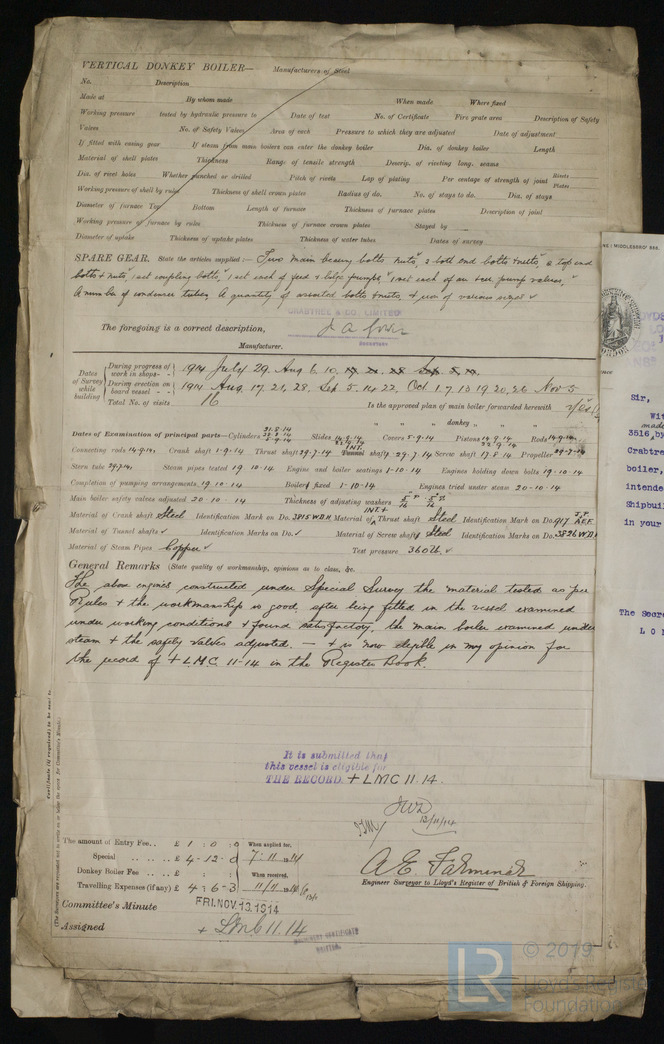 VERTICAL DONKEY BOILER— Manufacturers of Steel
No. Description
Made at By whom made When made Where fixed
Working pressure tested by hydraulic pressure to Date of test No. of Certificate Fire grate area Description of Safety
Valves No. of Safety Valves Area of each Pressure to which they are adjusted Date of adjustment
If fitted with easing gear If steam from main boilers can enter the donkey boiler Dia. of donkey boiler Length
Material of shell plates Thickness Range of tensile strength Descrip. of riveting long. seams
Dia. of rivet holes Whether punched or drilled Pitch of rivets Lap of plating Per centage of strength of joint Rivets Plates
Working pressure of shell by rules Thickness of shell crown plates Radius of do. No. of stays to do. Dia. of stays
Diameter of furnace Top Bottom Length of furnace Thickness of furnace plates Description of joint
Working pressure of furnace by rules Thickness of furnace crown plates Stayed by
Diameter of uptake Thickness of uptake plates Thickness of water tubes Dates of survey
SPARE GEAR. State the articles supplied:— Two main bearing bolts & nuts, 2 both end bolts & nuts, 2 top end
bolts & nuts, 1 set coupling bolts, 1 set each of feed & bilge pumps, 1 set each of air pump valves,
A number of condenser tubes, A quantity of assorted bolts & nuts, & iron of various sizes
CRABTREE & CO. LIMITED
The foregoing is a correct description,
Manufacturer.
Dates of Survey while building
During progress of work in shops - - 1914 July 29, Aug 6. 10.
During erection on board vessel - - 1914 Aug. 17. 21, 28, Sep. 5. 14. 22, Oct 1. 7. 10. 19. 20. 26. Nov 5
Total No. of visits 16 Is the approved plan of main boiler forwarded herewith Yes
" " " donkey " " "
Dates of Examination of principal parts—Cylinders Slides Covers 5-9-14 Pistons Rods 14.9.14
Connecting rods 14.9.14 Crank shaft 1-9-14 Thrust shaft 29.7.14 Tunnel shaft 29.7.14 Screw shaft 17.8.14 Propeller 29.7.14
Stern tube 29.7.14 Steam pipes tested 19.10.14 Engine and boiler seatings 1.10.14 Engines holding down bolts 19.10.14
Completion of pumping arrangements 19.10.14 Boilers fixed 1.10.14 Engines tried under steam 20.10.14
Main boiler safety valves adjusted 20.10.14 Thickness of adjusting washers
Material of Crank shaft Steel Identification Mark on Do. 3815 WDH Material of Thrust shaft Steel Identification Mark on Do. 917
Material of Tunnel shafts Identification Marks on Do. Material of Screw shafts Steel Identification Marks on Do. 3826 WDH
Material of Steam Pipes Copper Test pressure 360 lb.
General Remarks (State quality of workmanship, opinions as to class, &c.
The above engines constructed under Special Survey the material tested as per
Rules & the workmanship is good, after being fitted in the vessel examined
under working conditions & found satisfactory, the main boiler examined under
steam & the safety valves adjusted. — & is now eligible in my opinion for
the record of + LMC 11-14 in the Register Book.
It is submitted that
this vessel is eligible for
THE RECORD. + LMC 11.14.
JWD
12/11/14
The amount of Entry Fee .. £ 1 : 0 : 0 When applied for,
Special .. .. .. £ 4 . 12 . 0 7.11.1914
Donkey Boiler Fee .. .. £ : : When received,
Travelling Expenses (if any) £ 4 . 6 . 3 11/11 1914
Engineer Surveyor to Lloyd's Register of British & Foreign Shipping.
Committee's Minute FRI. NOV. 13. 1914
Assigned + LMC 11.14
MACHINERY CERTIFICATE
WRITTEN.
Sir,
Wit
made
3516, by
Crabtre
boiler,
intende
Shipbuil
in your
The Secre
L O
LR
© 2019
Lloyd's Register
Foundation